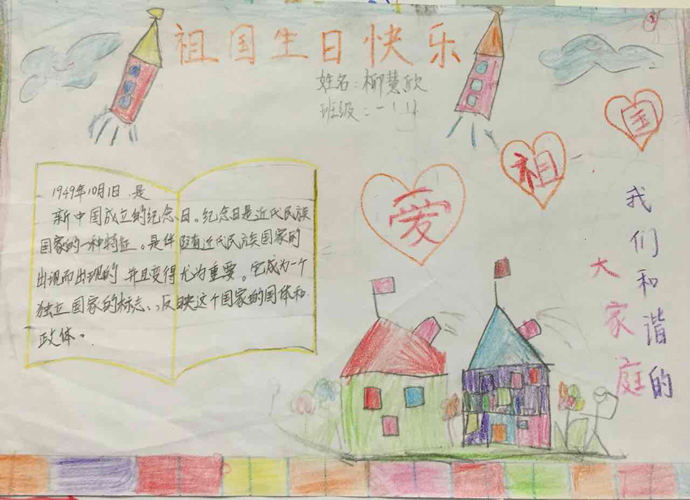 祖国生日快乐
姓名:柳慧欣
班级:一1班
爱
祖
国
我们和谐的
大家庭
1949年10月1日 是
新中国成立的纪念日。纪念日是近代民族
国家的一种特征。是伴随着近代民族国家的
出现而出现的 并且变得尤为重要。它成为一个
独立国家的标志、,反映这个国家的国体和
政体。